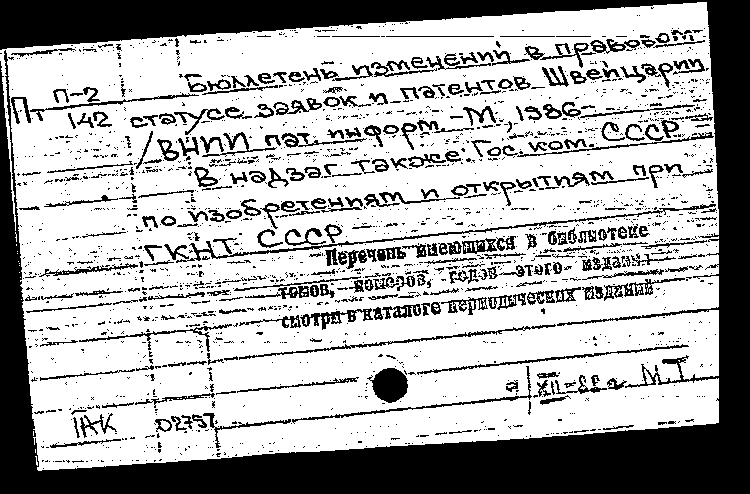 Пт П-2 Бюллетень изменений в правовом
142 статусе заявок и патентов Швейцарии
/ВНИИ пат. информ. -М., 1986-
В надзаг также: Гос. ком. СССР
по изобретениям и открытиям при
ГКНТ СССР
Перечень имеющихся в библиотеке
томов, номеров, годов этого издания
смотри в каталоге периодических изданий
а XII-88 г. М.Т.
IAK 02757